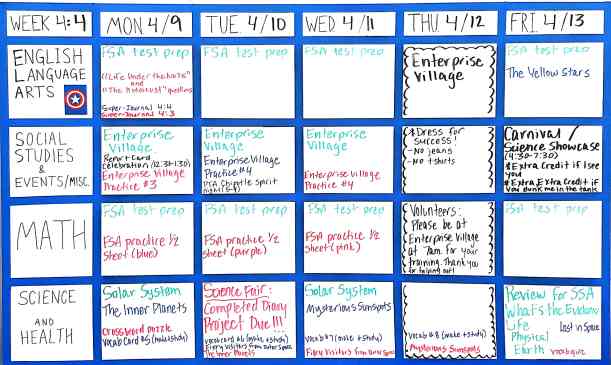 WEEK 4:4
MON 4/9
TUE. 4/10
WED 4/11
THU 4/12
FRI. 4/13
ENGLISH
LANGUAGE
ARTS
FSA test prep
and
Super-Journal 4:4
Super-Journal 4:3
FSA test prep
FSA test prep
Enterprise
Village
FSA test prep
The Yellow Stars
SOCIAL
STUDIES
&
EVENTS/MISC.
Enterprise
Village
Report Card
Celebration (12:30-1:30)
Enterprise Village
Practice #3
Enterprise
Village
Enterprise Village
Practice #4
PTA Chipotle Spirit
Enterprise
Village
Enterprise Village
Practice #4
*Dress for
Success!
- No jeans
- No tshirts
Carnival /
Science Showcase
(4:30-7:30)
*Extra Credit if I see
you
*Extra Extra Credit if
you dunk me in the tank
MATH
FSA test prep
FSA practice 1/2
sheet (blue)
FSA test prep
FSA practice 1/2
sheet (purple)
FSA test prep
FSA practice 1/2
sheet (pink)
Volunteers:
Please be at
Enterprise Village
at 7am for your
training. Thank you
for helping out!
FSA test prep
SCIENCE
AND
HEALTH
Solar System
The Inner Planets
Crossword puzzle
Vocab Card #5 (make+study)
Science Fair:
Completed Diary
Project Due!!!
Vocab card #6 (make + study)
Fiery Visitors from Outer Space
The Inner Planets
Solar System
Mysterious Sunspots
Vocab #7 (make + study)
Fiery Visitors from Outer Space
Vocab #8 (make + study)
Mysterious Sunspots
Review for SSA
What's the Evidence
Life
Lost in Space
Physical
Earth
vocab quiz